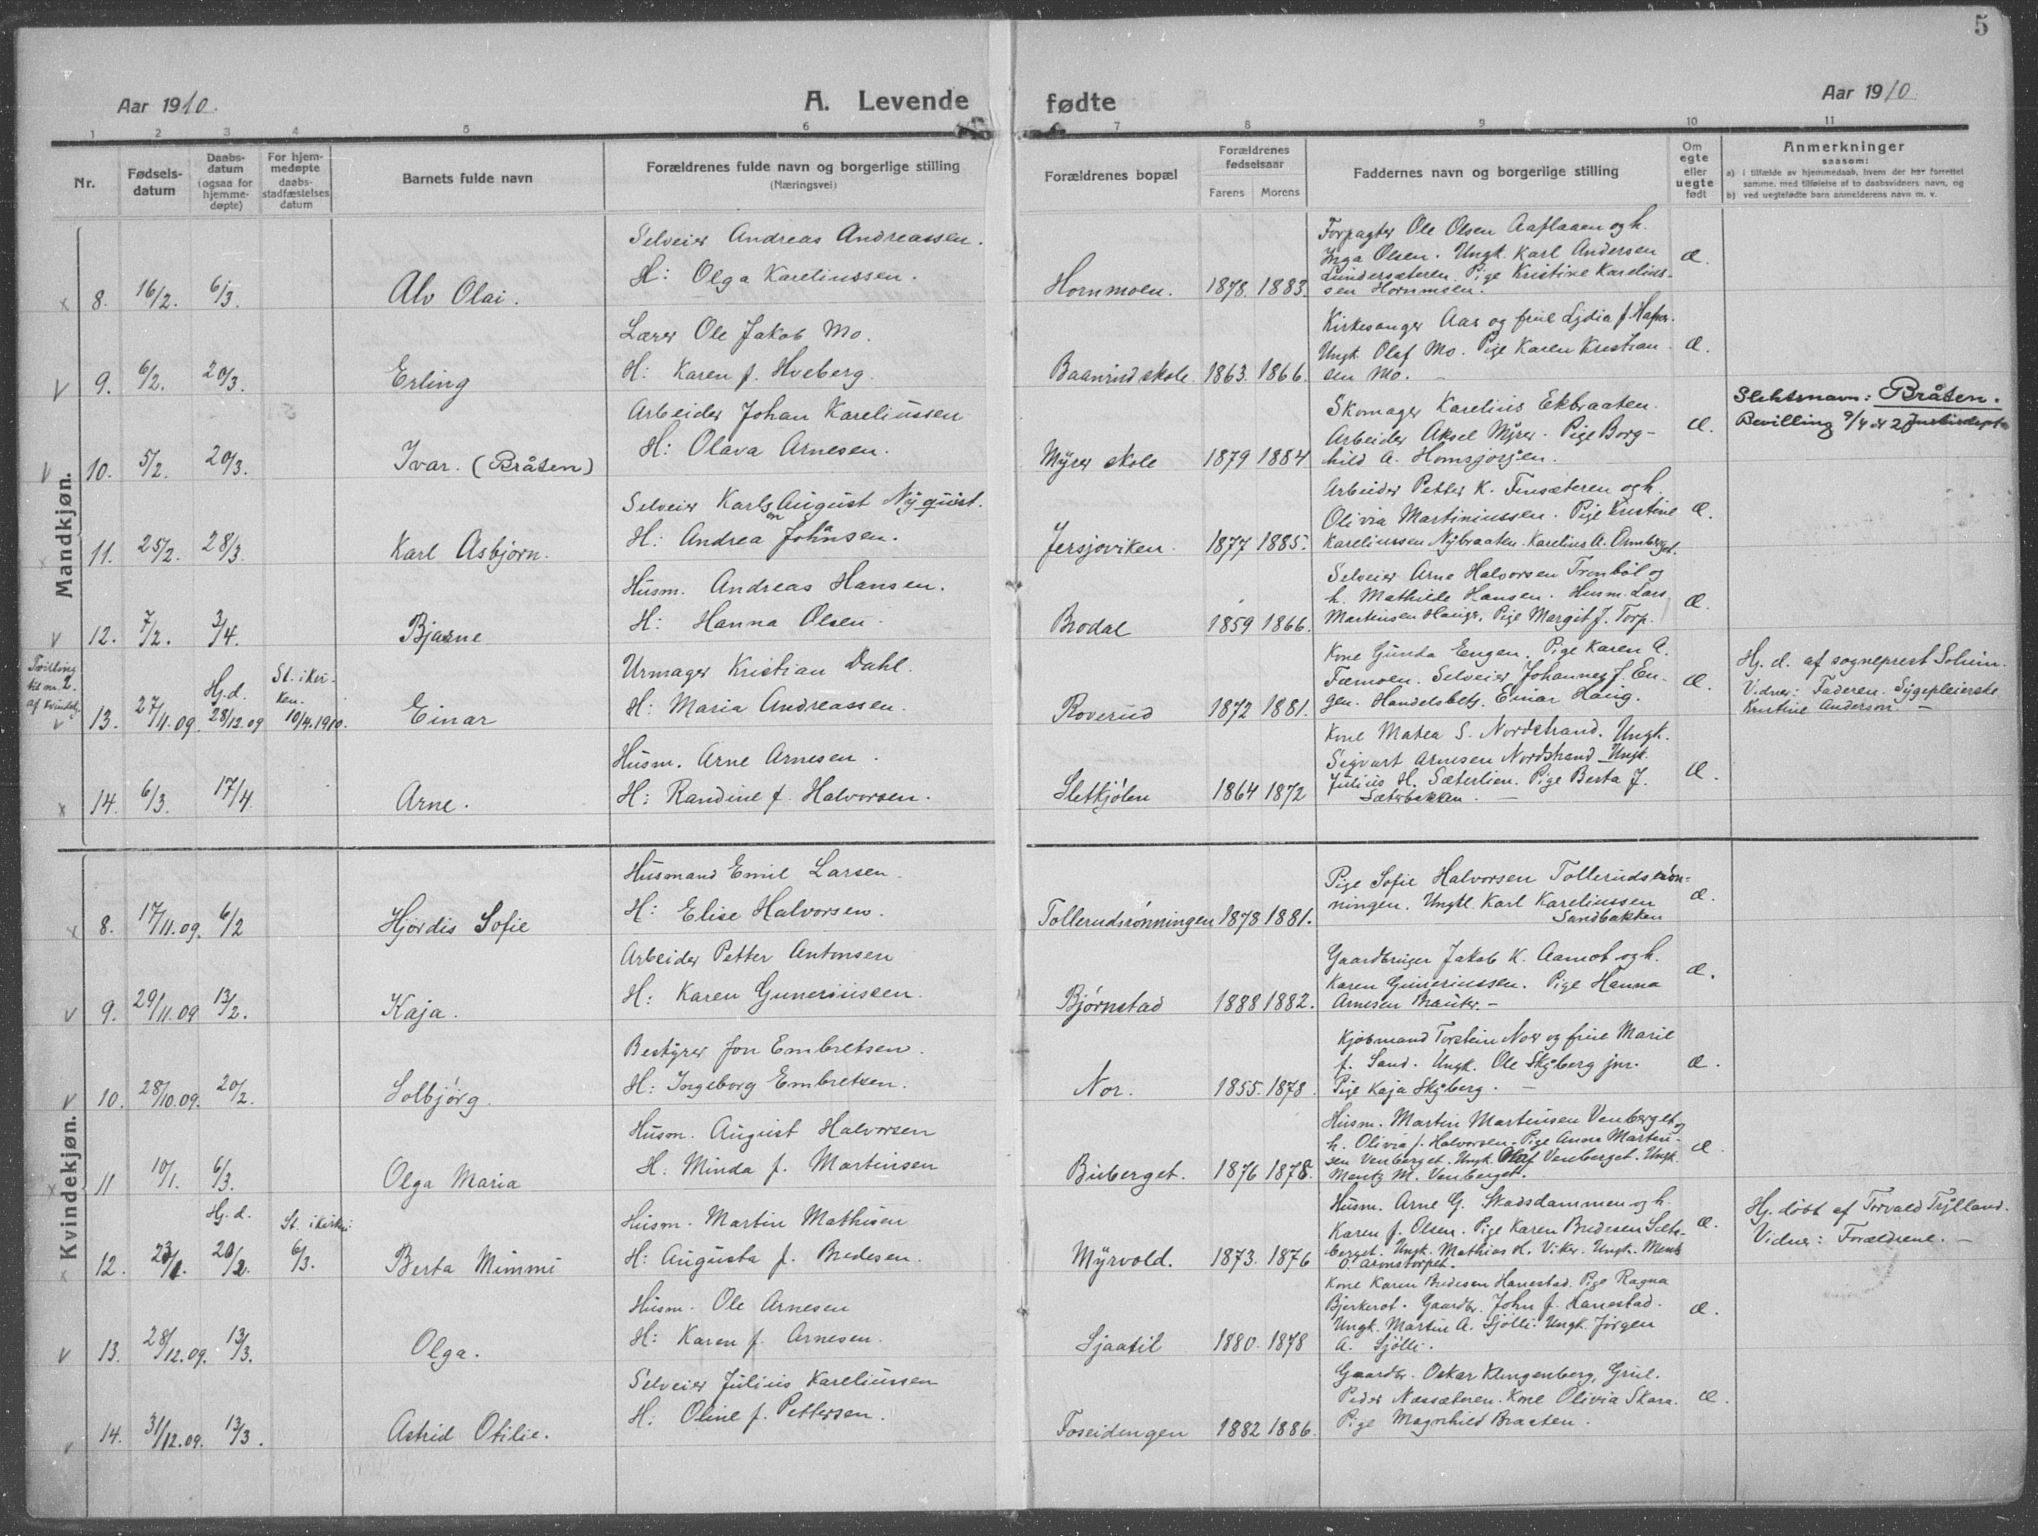 5
Aar 1910.
A. Levende
fødte
Aar 1910.
1 2 3 4 5 6 7 8 9 10 11
Nr.
Fødsels-
datum
Daabs-
datum
(ogsaa for
hjemme-
døpte)
For hjem-
medøpte
daabs-
stadfæstelses
datum
Barnets fulde navn
Forældrenes fulde navn og borgerlige stilling
(Næringsvei)
Forældrenes bopæl
Forældrenes
fødselsaar
Farens Morens
Faddernes navn og borgerlige stilling
Om
egte
eller
uegte
født
Anmerkninger
saasom:
a) i tilfælde av hjemmedaab, hvem der har forrettet
samme, med tilføielse af to daabsvidners navn, og
b) ved uegtefødte barn anmelderens navn m. v.
Mandkjøn.
Selveier Andreas Andreassen.
x 8. 16/2. 6/3. Alv Olai. H: Olga Kareliussen. Hornmoen. 1878. 1883.
Forpagter Ole Olsen Aaflaaen og h.
Inga Olsen. Ungk. Karl Andersen
Lundersæteren. Pige Kristine Karelius-
sen Hornmoen.
Æ.
Lærer Ole Jakob Mo.
v 9. 6/2. 20/3. Erling H: Karen f. Hveberg. Baanrud skole. 1863. 1866.
Kirkesanger Aas og frue Lydia f. Hafner.
Ungk. Olaf Mo. Pige Karen Kristian-
sen Mo. –
Æ.
Arbeider Johan Kareliussen
v 10. 5/2. 20/3. Ivar. (Bråten) H: Olava Arnesen. Myrer skole 1879 1884
Skomager Karelius Ekbraaten.
Arbeider Aksel Myrer. Pige Borg-
hild A. Homsjorgen.
Æ.
Slektsnavn: Bråten.
Bevilling 9/4 24 2 Justisdept.
Selveier Karl August Nyquist.
x 11. 25/2. 28/3. Karl Asbjørn. H: Andrea Johansen. Jersjoviken. 1877 1885.
Arbeider Petter K. Finsæteren og h.
Olivia Martiniussen. Pige Kristine
Kareliussen Nybraaten. Karelius A. Dunberget.
Æ.
Husm. Andreas Hansen.
v 12. 7/2. 3/4. Bjarne H: Hanna Olsen. Brodal 1859 1866.
Selveier Arne Halvorsen Trønbøl og
h. Mathilde Hansen. Husm. Lars
Martinsen Hauger. Pige Margit J. Torp.
Æ.
Tvilling
til nr. 2.
af kvindekj.
Urmager Kristian Dahl.
v 13. 27/11.09. Hj.d. 28/12.09 St. i kir-
ken. 10/4.1910. Einar H: Maria Andreassen. Roverud 1872 1881.
Kone Gunda Engen. Pige Karen A.
Fæmoen. Selveier Johannes J. En-
gen. Handelsbetj. Einar Haug.
Æ.
Hj. d. af sogneprest Solum.
Vidner: Faderen. Sygepleierske
Kristine Anderson. –
Husm. Arne Arnesen.
x 14. 6/3. 17/4. Arne. H: Randine f. Halvorsen. Sletkjølen 1864 1872
Kone Matea S. Nordstrand. Ungk.
Sigvart Arnesen Nordstrand. Ungk.
Julius H. Sæterlien. Pige Berta J.
Sæterbakken. –
Æ.
Kvindekjøn.
Husmand Emil Larsen.
x 8. 17/11.09. 6/2 Hjørdis Sofie H: Elise Halvorsen. Tollerudsrønningen 1878 1881.
Pige Sofie Halvorsen Tollerudsrøn-
ningen. Ungk. Karl Kareliussen
Sandbakken
Æ.
Arbeider Petter Antonsen
v 9. 29/11.09 13/2. Kaja. H: Karen Guneriussen. Bjørnstad 1888 1882.
Gaardbruger Jakob K. Aamot og h.
Karen Guneriussen. Pige Hanna
Arnesen Brauter. –
Æ.
Bestyrer Jon Embretsen.
v 10. 28/10.09. 20/2. Solbjørg. H: Ingeborg Embretsen. Nor. 1855. 1878.
Kjøbmand Torstein Nor og frue Marie
f. Sand. Ungk. Ole Skyberg jnr.
Pige Kaja Skyberg. –
Æ.
Husm. August Halvorsen
x 11 10/1. 6/3. Olga Maria H: Minda f. Martinsen Buberget. 1876 1878.
Husm. Martin Martinsen Venberget og
h. Olivia f. Halvorsen. Pige Anna Martin-
sen Venberget. Ungk. Olaf Venberget. Ungk.
Mentz M. Venberget.
Æ.
Husm. Martin Mathisen
x 12. 23/1. Hj.d. 20/2. St. i kirken 6/3. Berta Mimmi H: Augusta f. Bredesen. Myrvold. 1873. 1876
Husm. Arne G. Stadsdammen og h.
Karen f. Olsen. Pige Karen Bredesen Sæte-
berget. Ungk. Mathias L. Viker. Ungk. Mentz
O. Arnstorpet.
Æ.
Hj. døbt af Torvald Trylland.
Vidner: Forældrene. –
Husm. Ole Arnesen
v 13. 28/12.09. 13/3. Olga. H: Karen f. Arnesen. Sjaatil 1880. 1878
Kone Karen Bredesen Hanestad. Pige Ragna
Bjerkerot. Gaardbr. John J. Hanestad.
Ungk. Martin A. Sjølli. Ungk. Jørgen
A. Sjølli.
Æ.
Selveier Julius Kareliussen
v 14. 31/12.09. 13/3. Astrid Otilie. H: Oline f. Pettersen. Foseidengen 1882 1886.
Gaardbr. Oskar Klingenberg, Grue.
Peder Næssæteren. Kone Olivia Skara.
Pige Magnhild Braaten.
Æ.